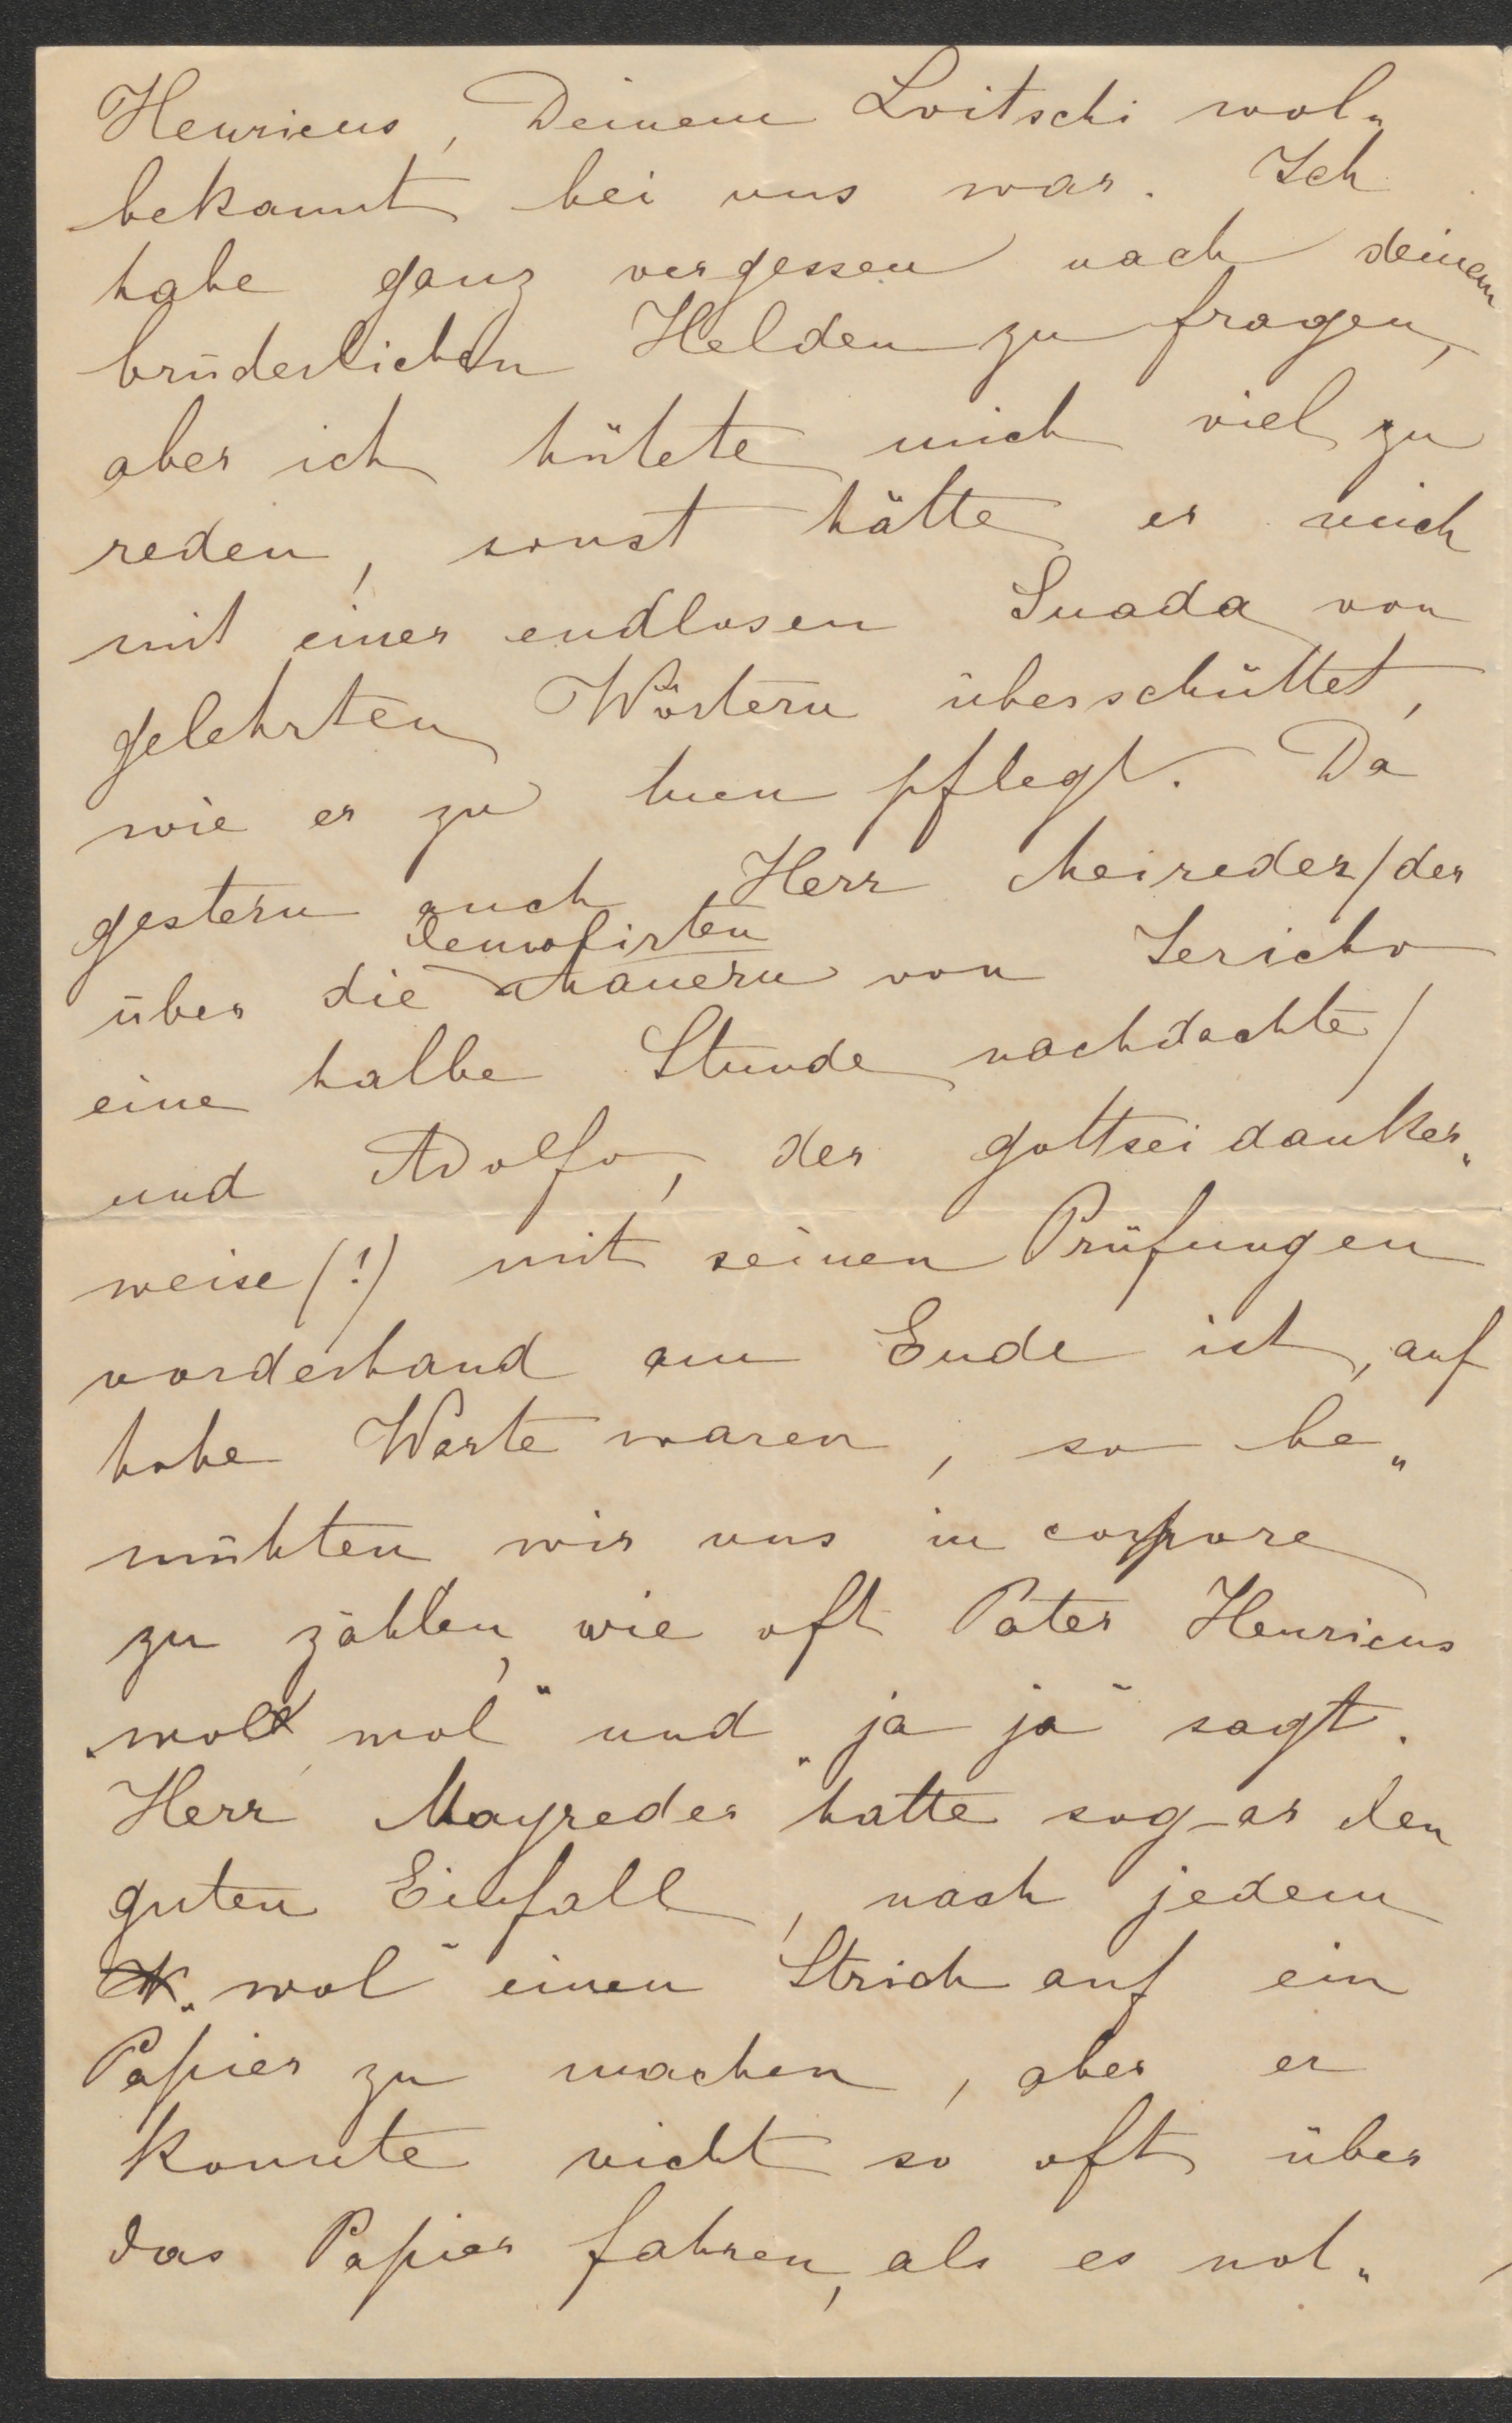 Henricus, Deinem Loitschi wol„
bekannt bei uns war. Ich
habe ganz vergessen nach deinem
brüderlichen Helden zu fragen,
aber ich hütete mich viel zu
reden, sonst hätte er mich
mit einer endlosen Suada von
gelehrten Wörtern überschüttet,
wie er zu tuen pflegt. Da
gestern auch Herr Meireder /der
demolirten
über die Mauern von Jericho
eine halbe Stunde nachdachte/
und Adolfo, der gottseidanker„
weise (!) mit seinen Prüfungen
vorderhand am Ende ist, auf
hohe Warte waren, so be„
mühten wir uns in corpore
zu zählen, wie oft Pater Henricus
„wol wol“ und „ja ja“ sagt.
Herr Mayreder hatte sogar den
guten Einfall, nach jedem
„wol“ einen Strich auf ein
Papier zu machen, aber er
konnte nicht so oft über
das Papier fahren, als es not„